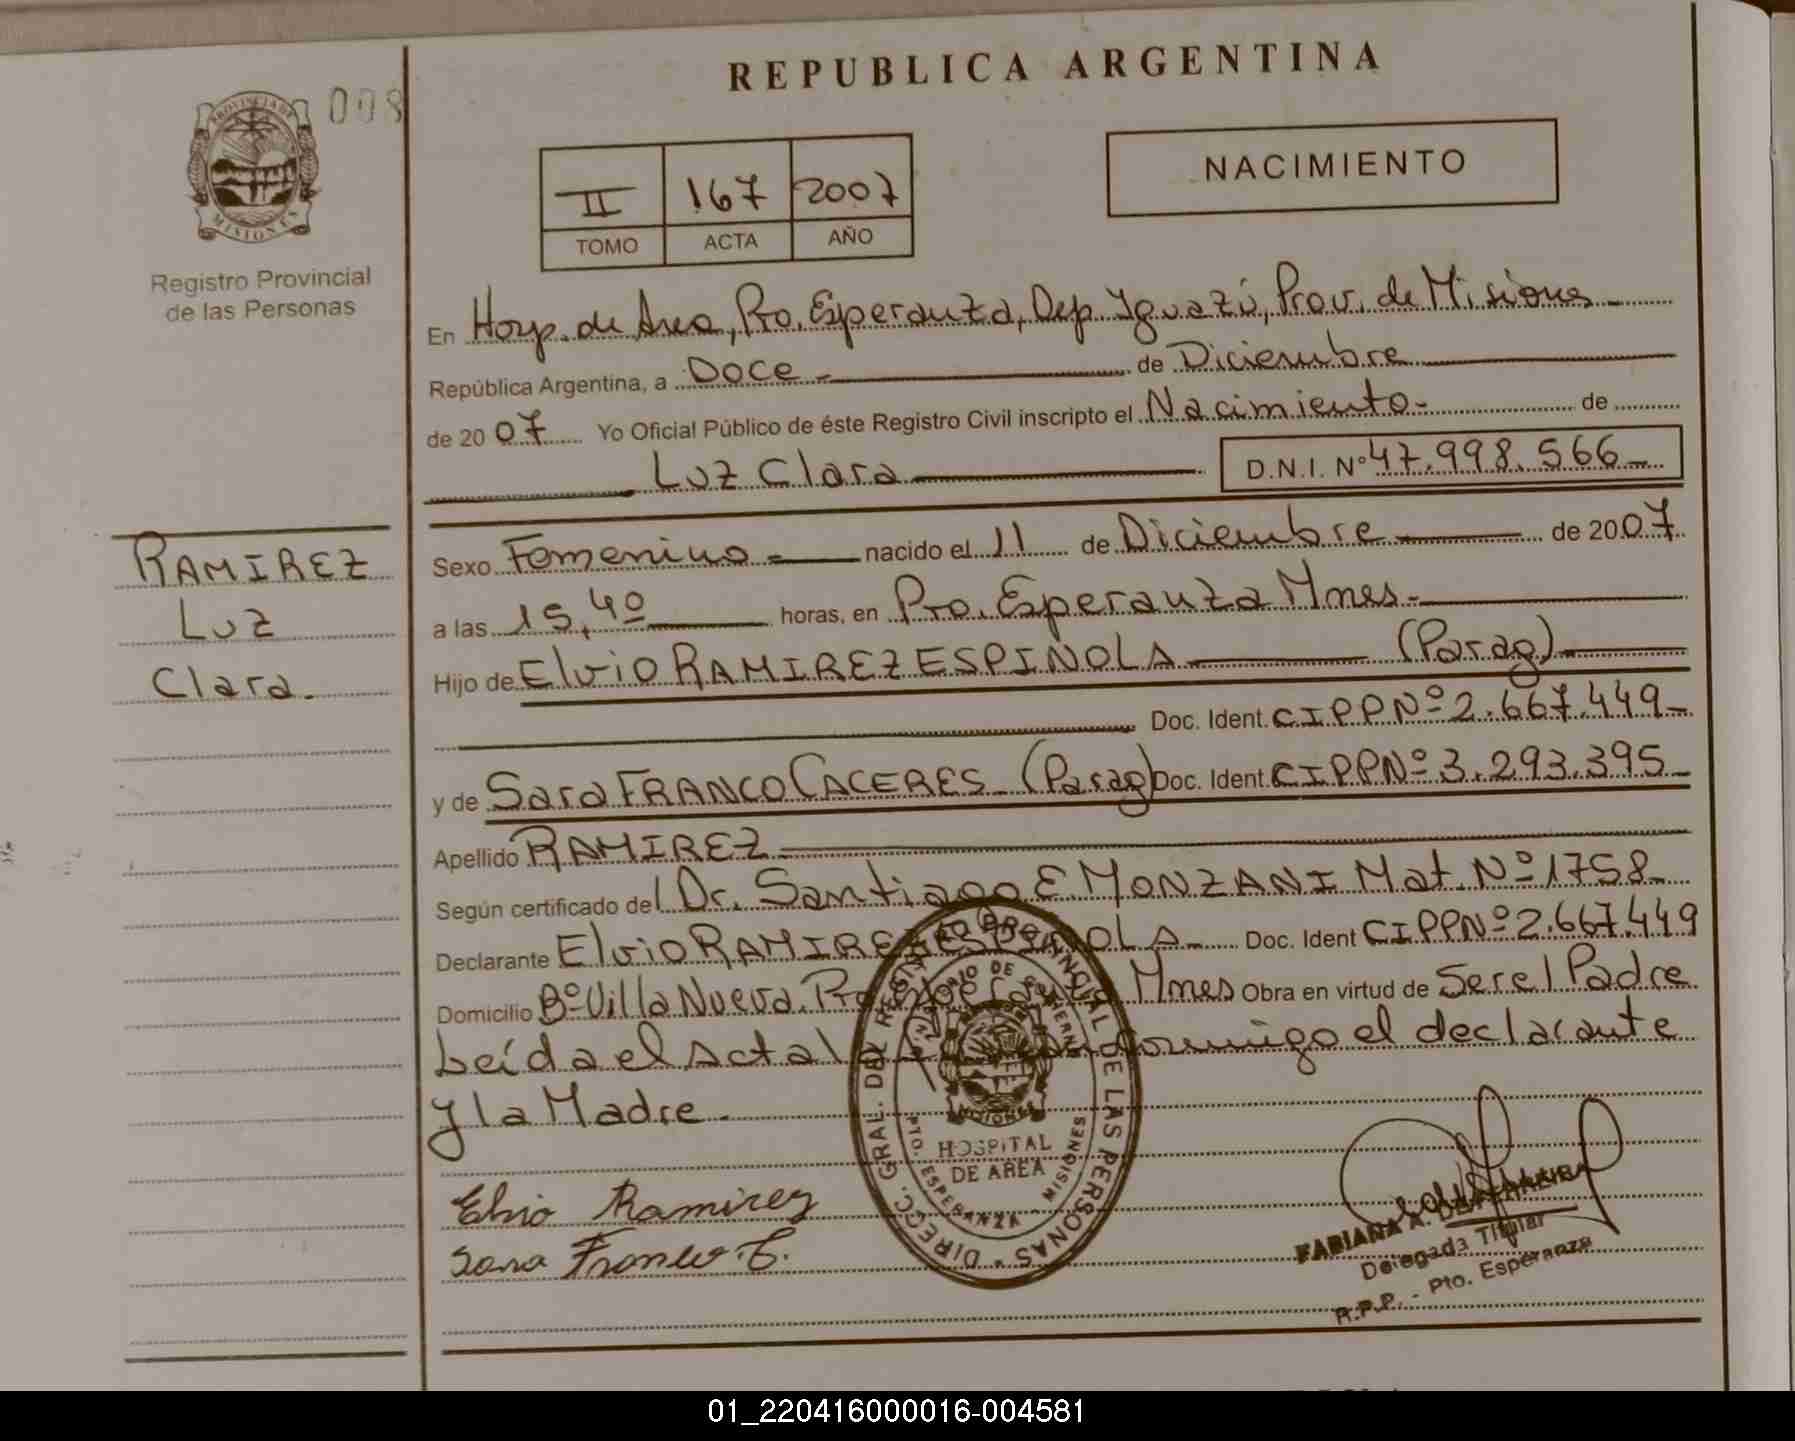 REPUBLICA ARGENTINA
008
PROVINCIA DE
MISIONES
Registro Provincial
de las Personas
II 167 2007
TOMO ACTA AÑO
NACIMIENTO
En Hosp. de Area, Pto. Esperanza, Dep. Iguazú, Prov. de Misiones
República Argentina, a Doce de Diciembre
de 20 07 Yo Oficial Público de éste Registro Civil inscripto el Nacimiento de
Luz Clara D.N.I. Nº 47.998.566
RAMIREZ
Luz
Clara.
Sexo Femenino nacido el 11 de Diciembre de 2007
a las 15,40 horas, en Pto. Esperanza Mnes.
Hijo de Elvio RAMIREZ ESPINOLA (Parag)
Doc. Ident. CIPPNº 2.667.449
y de Sara FRANCO CACERES (Parag) Doc. Ident. CIPPNº 3.293.395
Apellido RAMIREZ
Según certificado del Dr. Santiago E. MONZANI Mat. Nº 1758
Declarante Elvio RAMIREZ ESPINOLA Doc. Ident CIPPNº 2.667.449
Domicilio Bº Villa Nueva. Pto. Esperanza Mnes Obra en virtud de Ser el Padre
Leída el Acta la conmigo el declarante
y la Madre.
DIRECC. GRAL. DEL REGISTRO PROVINCIAL DE LAS PERSONAS
MISIONES
HOSPITAL
DE AREA
PTO. ESPERANZA - MISIONES
Elvio Ramirez
Sara Franco C.
FABIANA A.
Delegada Titular
R.P.P. - Pto. Esperanza
01_220416000016-004581